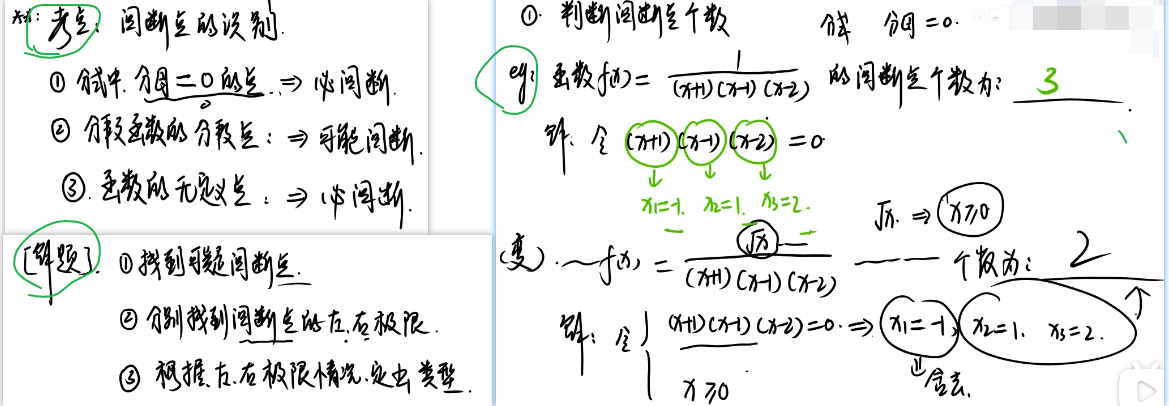 考点: 间断点的识别.
① 分式中.分母=0的点. ⇒ 必间断.
② 分段函数的分段点: ⇒ 可能间断.
③. 函数的无定义点: ⇒ 必间断.
[解题]. ①找到可疑间断点.
② 分别找到间断点的左.右极限.
③ 根据.左.右极限情况.定出类型.
①. 判断间断点个数 分式 分母=0.
eg: 函数f(x)= 1/((x+1)(x-1)(x-2)) 的间断点个数为: 3.
解: 令 (x+1)(x-1)(x-2) =0
x₁=-1. x₂=1. x₃=2.
√x. ⇒ x≥0
(变). f(x) = √x/((x+1)(x-1)(x-2)) 个数为: 2
解: 令 { (x+1)(x-1)(x-2)=0. ⇒ x₁=-1, x₂=1. x₃=2.
x≥0
舍去.